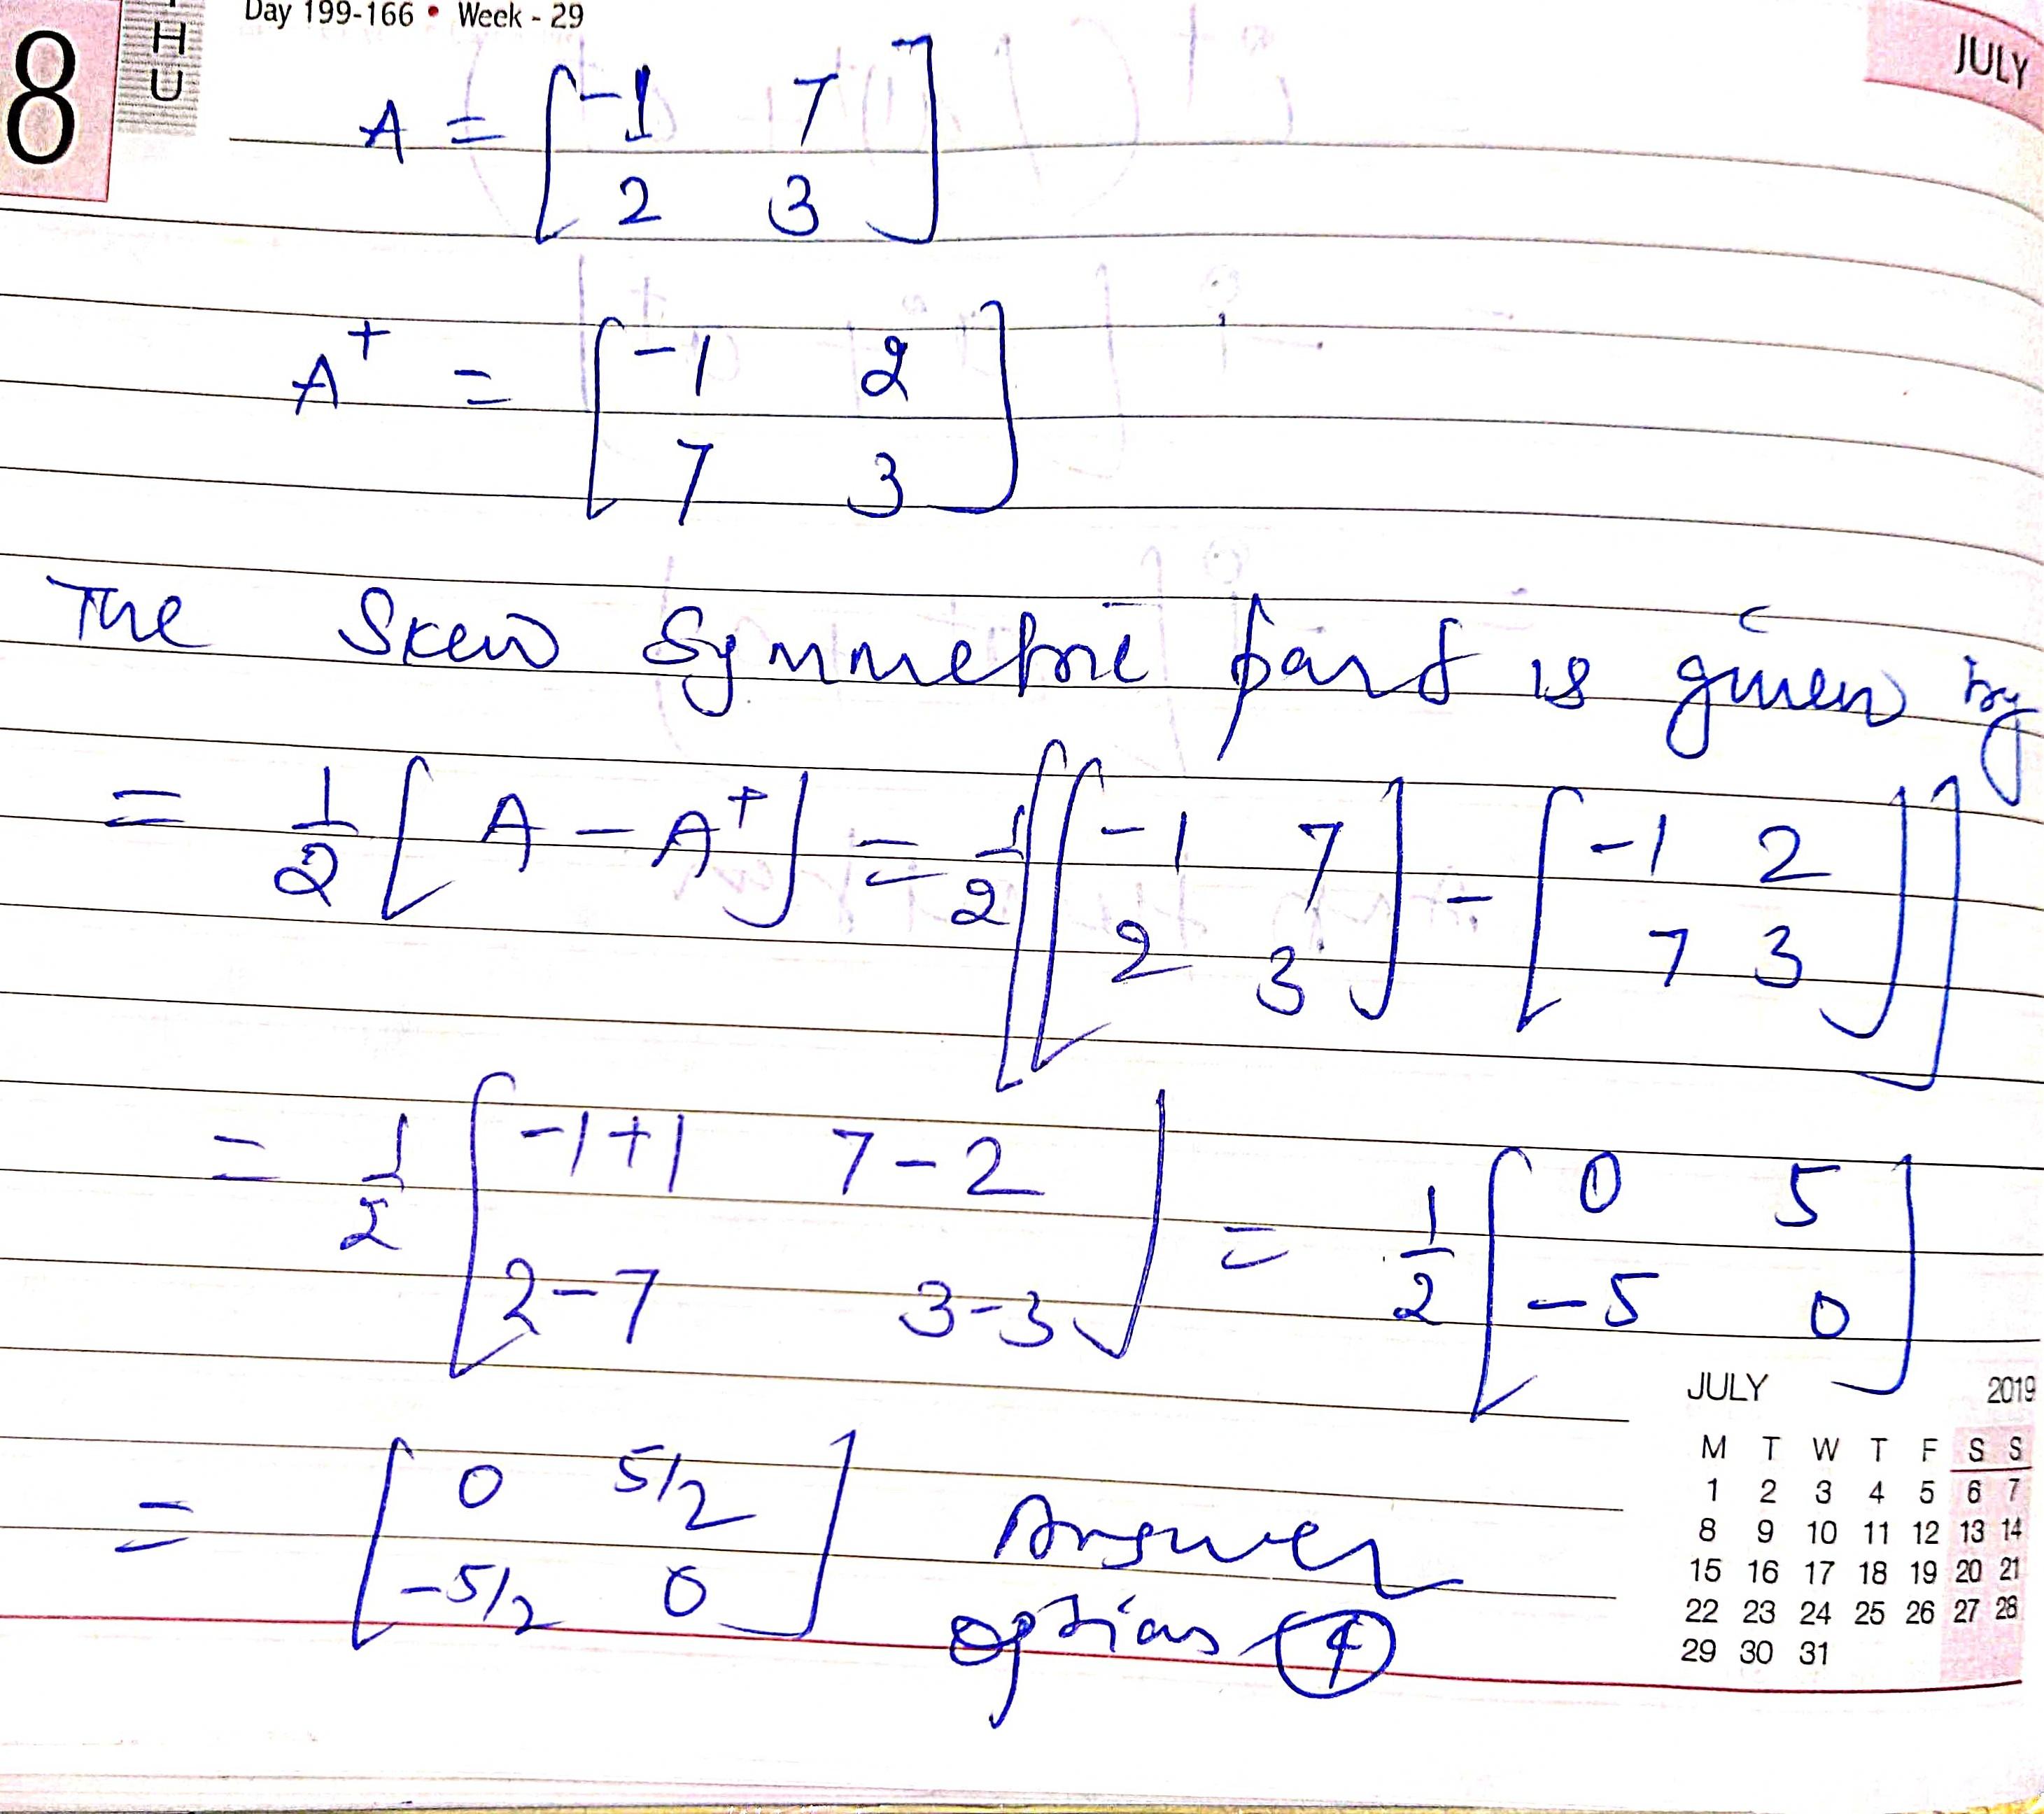 8 THU Day 199-166 • Week - 29 JULY
A = [ -1 7
2 3 ]
A^t = [ -1 2
7 3 ]
The Skew Symmetric part is given by
= 1/2 [ A - A^t ] = 1/2 [ [ -1 7
2 3 ] - [ -1 2
7 3 ] ]
= 1/2 [ -1+1 7-2
2-7 3-3 ] = 1/2 [ 0 5
-5 0 ]
= [ 0 5/2
-5/2 0 ] Answer
option 4
JULY 2019
M T W T F S S
1 2 3 4 5 6 7
8 9 10 11 12 13 14
15 16 17 18 19 20 21
22 23 24 25 26 27 28
29 30 31